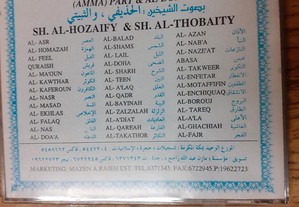 (AMMA) PART & AD-D
بصوت الشيخين : الحذيفي ، والثبيتي
SH. AL-HOZAIFY & SH. AL-THOBAITY
AL-ASR العصر AL-BALAD البلد AL-AZAN الأذان
AL-HOMAZAH الهمزة AL-SHAMS الشمس AL-NABA' النبأ
AL-FEEL الفيل AL-LAIL الليل AL-NAZE'AT النازعات
QURAISH قريش AL-DOHA الضحى ABASA عبس
AL-MA'OUN الماعون AL-SHARH الشرح AL-TAKWEER التكوير
AL-KAWTHAR الكوثر AL-TEEN التين AL-ENFETAR الانفطار
AL-KAFEROUN الكافرون AL-ALAQ العلق AL-MOTAFFIFIN المطففين
AL-NASR النصر AL-QADR القدر AL-ENCHIQUAQ الانشقاق
AL-MASAD المسد AL-BAYINAH البينة AL-BOROUJ البروج
AL-EKHLAS الإخلاص AL-ZALZALAH الزلزلة AL-TAREQ الطارق
AL-FALAQ الفلق AL-ADIYAT العاديات AL-A'LA الأعلى
AL-NAS الناس AL-QAREAH القارعة AL-GHACHIAH الغاشية
AL-DOA'A الدعاء AL-TAKATHOR التكاثر AL-FAJR الفجر
MARKETING: MAZEN A. RAJIH EST. FAX: 6722945.P:19622723